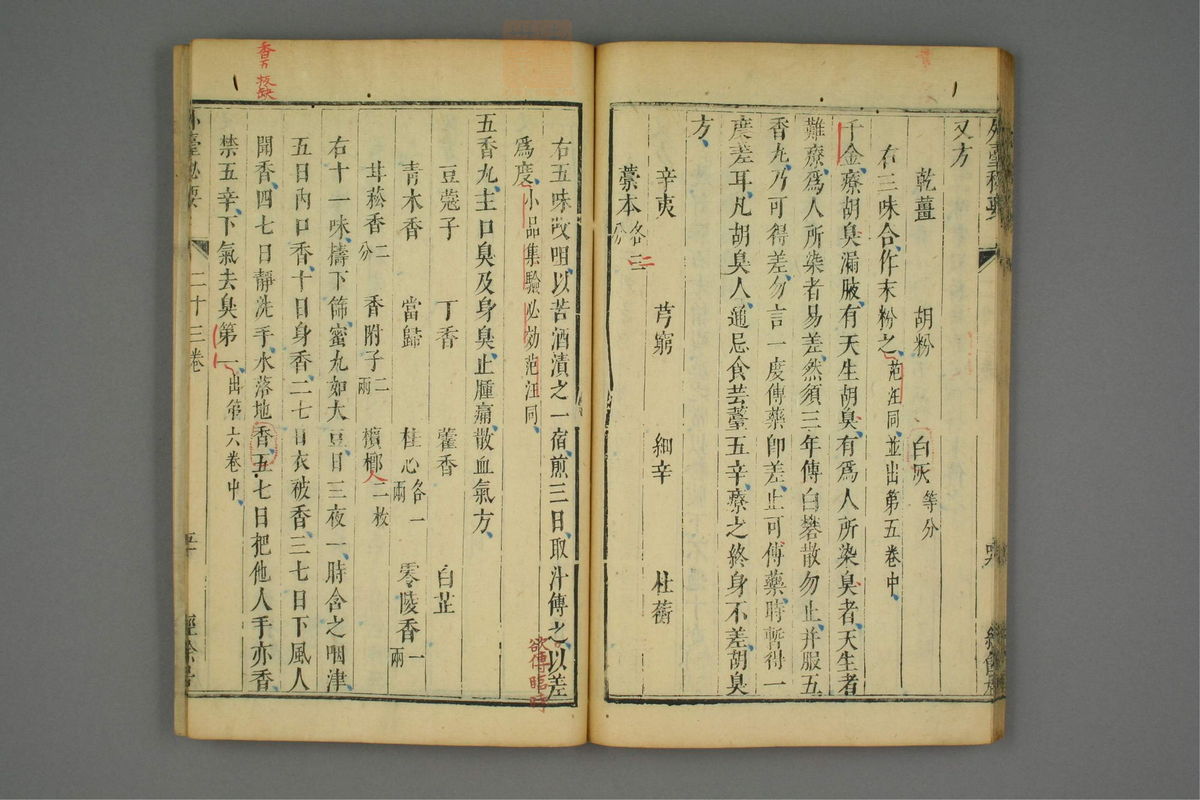 又方
乾薑 胡粉 白灰等分
右三味合作末粉之范汪同並出第五卷中
千金療胡臭漏腋有天生胡臭有爲人所染臭者天生者
難療爲人所染者易差然須三年傅白礬散勿止并服五
香丸乃可得差勿言一度傅藥即差止可傅藥時暫得一
度差耳凡胡臭人通忌食芸薹五辛療之終身不差胡臭
方
辛夷 芎藭 細辛 杜蘅
藁本各二分
右五味㕮咀以苦酒漬之一宿煎三日取汁傅之以差
欲傅臨時
爲度小品集驗必効范汪同
五香丸主口臭及身臭止腫痛散血氣方
豆蔻子 丁香 藿香 白芷
青木香 當歸 桂心各一兩 零陵香一兩
甘菘香二分 香附子二兩 檳榔二枚
人
右十一味擣下篩蜜丸如大豆日三夜一時含之咽津
五日內口香十日身香二七日衣被香三七日下風人
聞香四七日靜洗手水落地香五七日把他人手亦香
禁五辛下氣去臭第一出第六卷中
外臺祕要 二十三卷 五十 經餘居